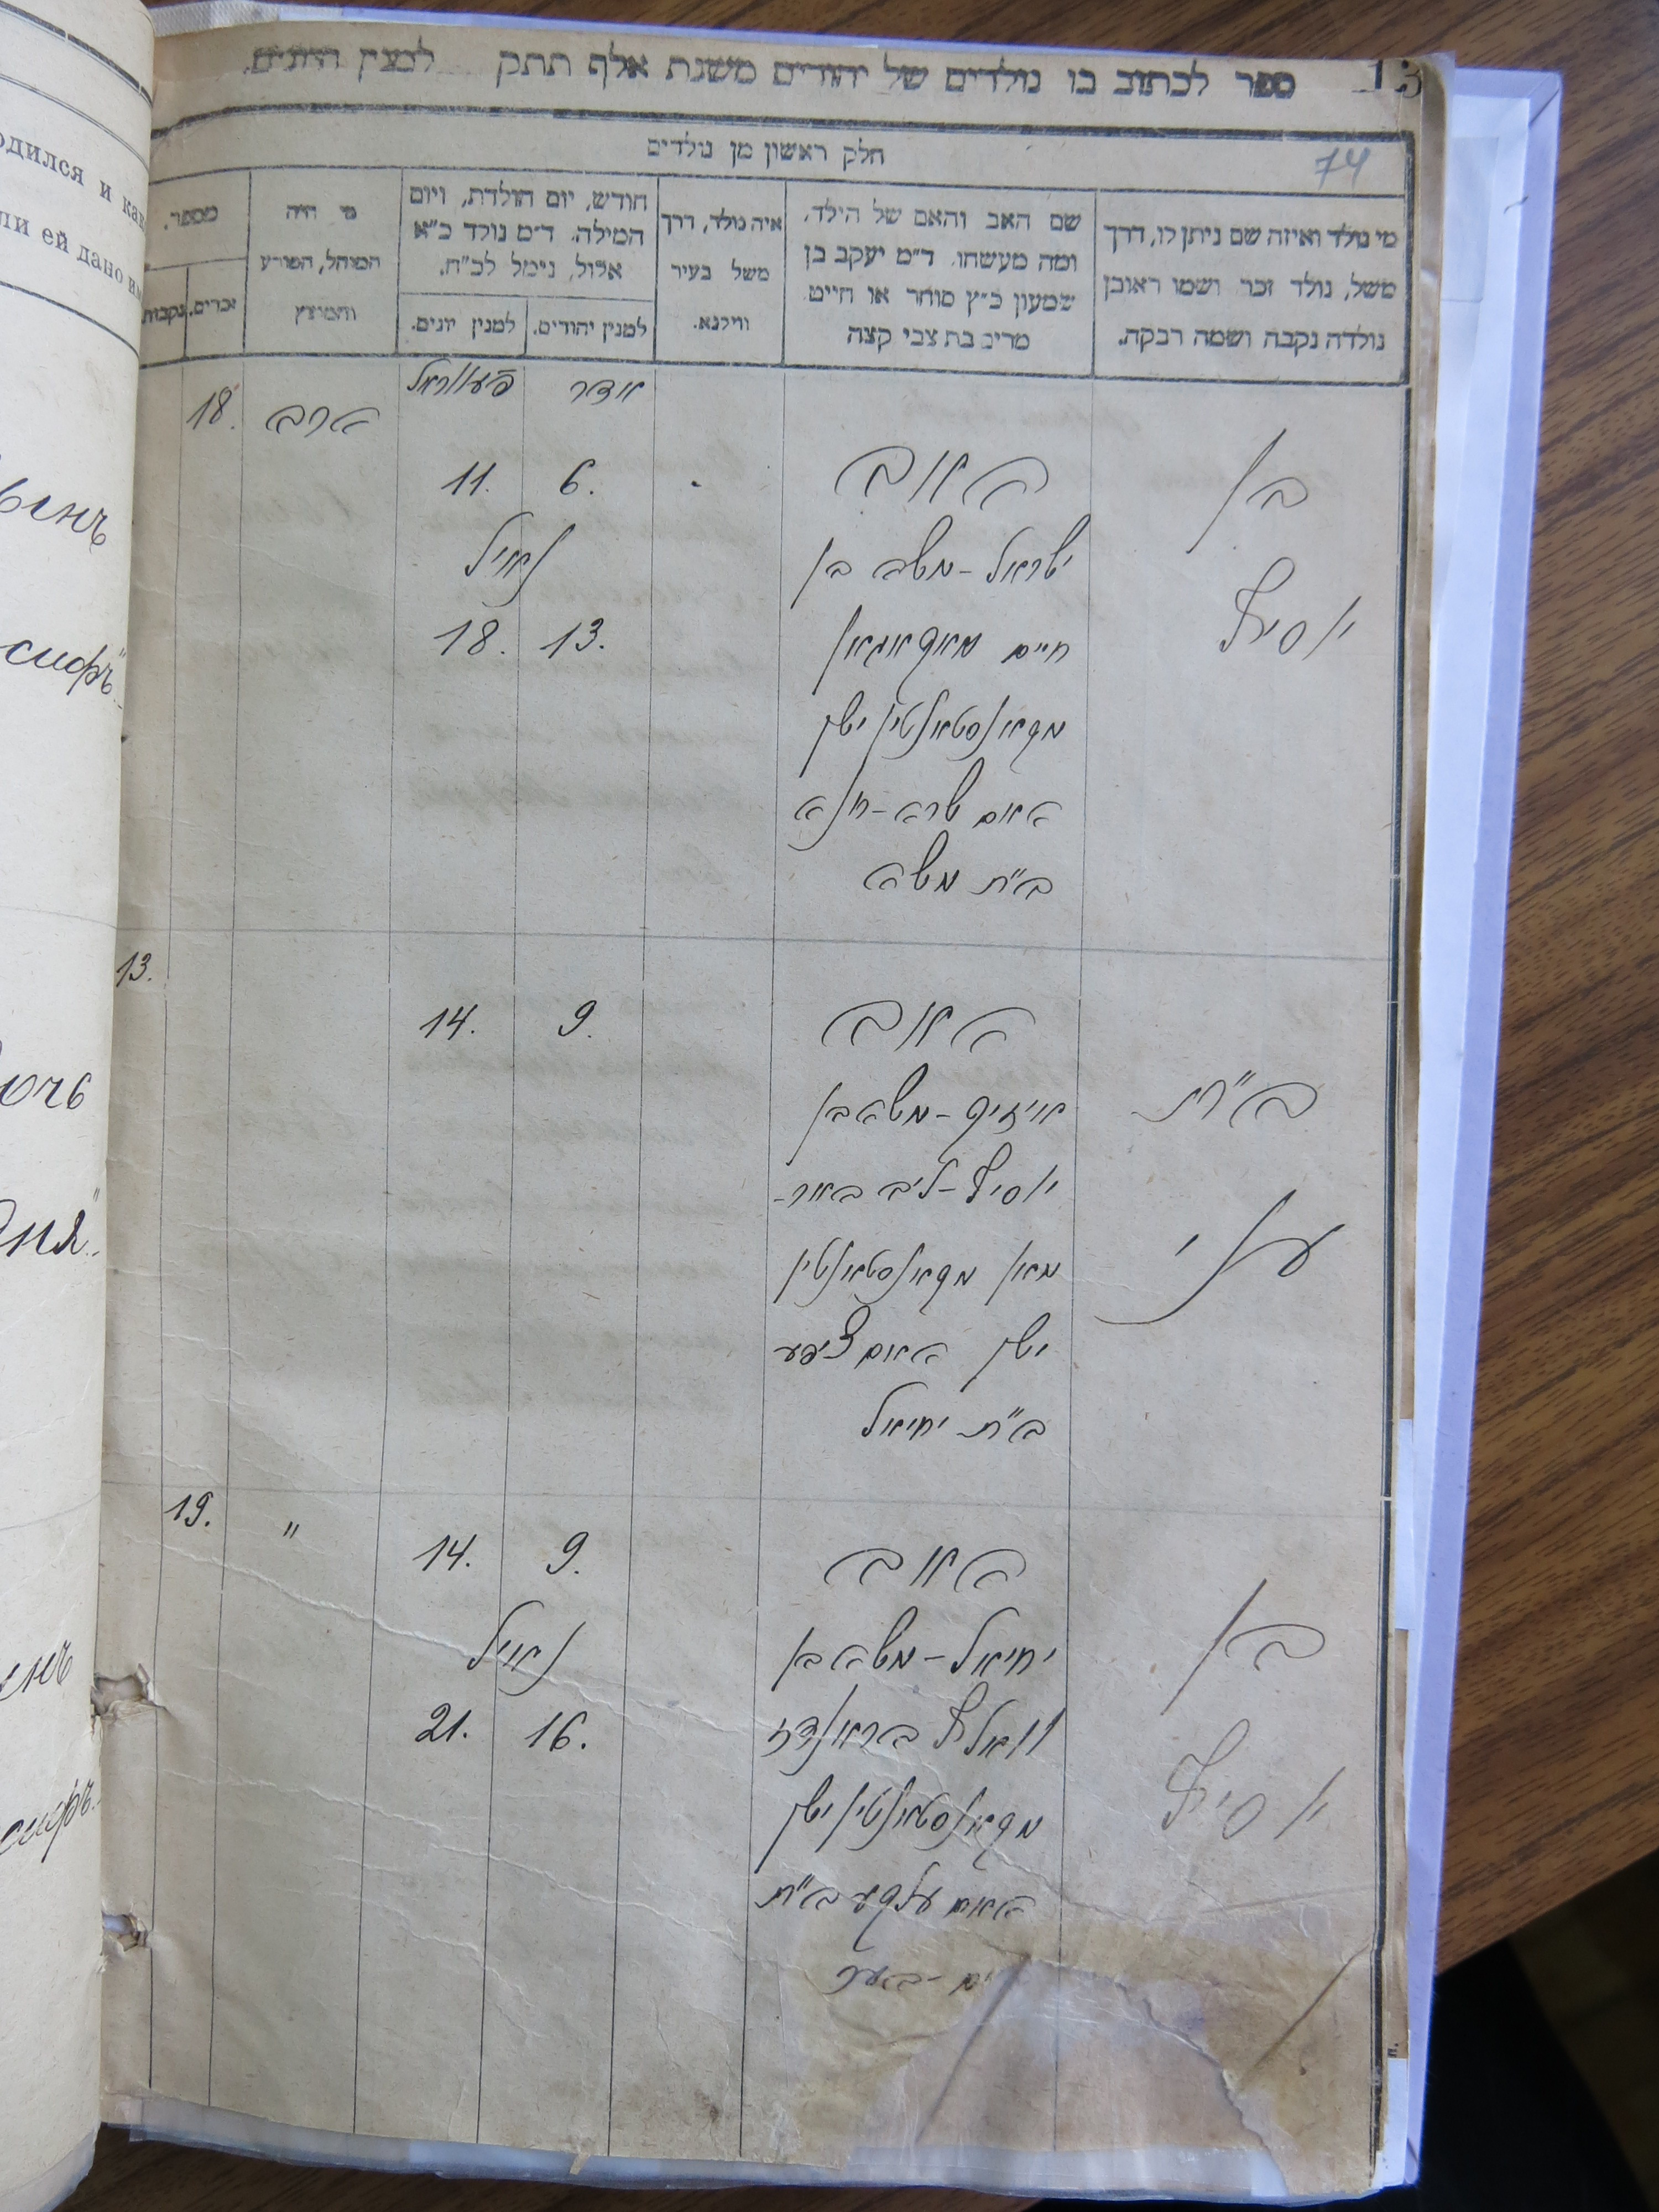 13
ספר לכתוב בו נולדים של יהודים משנת אלף תתק למנין היונים.
74
חלק ראשון מן נולדים
מי נולד ואיזה שם ניתן לו, דרך
משל, נולד זכר ושמו ראובן
נולדה נקבה ושמה רבקה.
שם האב והאם של הילד,
ומה מעשהו. ד״מ יעקב בן
שמעון כ״ץ סוחר או חייט
מרים בת צבי קצה
איה נולד, דרך
משל בעיר
ווילנא.
חודש, יום הולדת, ויום
המילה. ד״מ נולד כ״א
אלול, נימל לכ״ח.
למנין יהודים.
למנין יונים.
מי היה
המוהל, הפורע
והמוצץ
מספר.
זכרים.
נקבות
בן
יוסיף
האוב
ישראל-משה בן
חיים
מקאנסטאנטין ישן
האום שרה-חנה
ב״ת משה
אדר
פעווראל
6.
11.
נמויל
13.
18.
הרב
18.
ב״ת
האוב
אייזיק-משה בן
יוסיף-ליב באר-
מאן מקאנסטאנטין
ישן האום ציפע
ב״ת יחיאל
9.
14.
13.
בן
יוסיף
האוב
יחיאל-משה בן
וואלף
מקאנסטאנטין ישן
האום ב״ת
9.
14.
נמויל
16.
21.
"
19.
одился и как
ли ей дано им
сифъ"
очь